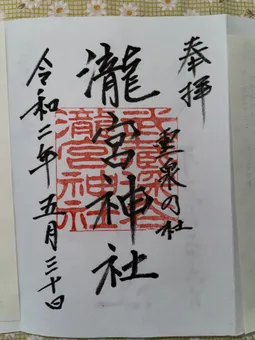 奉拝
霊泉の社
瀧宮神社
瀧宮神社
令和二年五月三十日